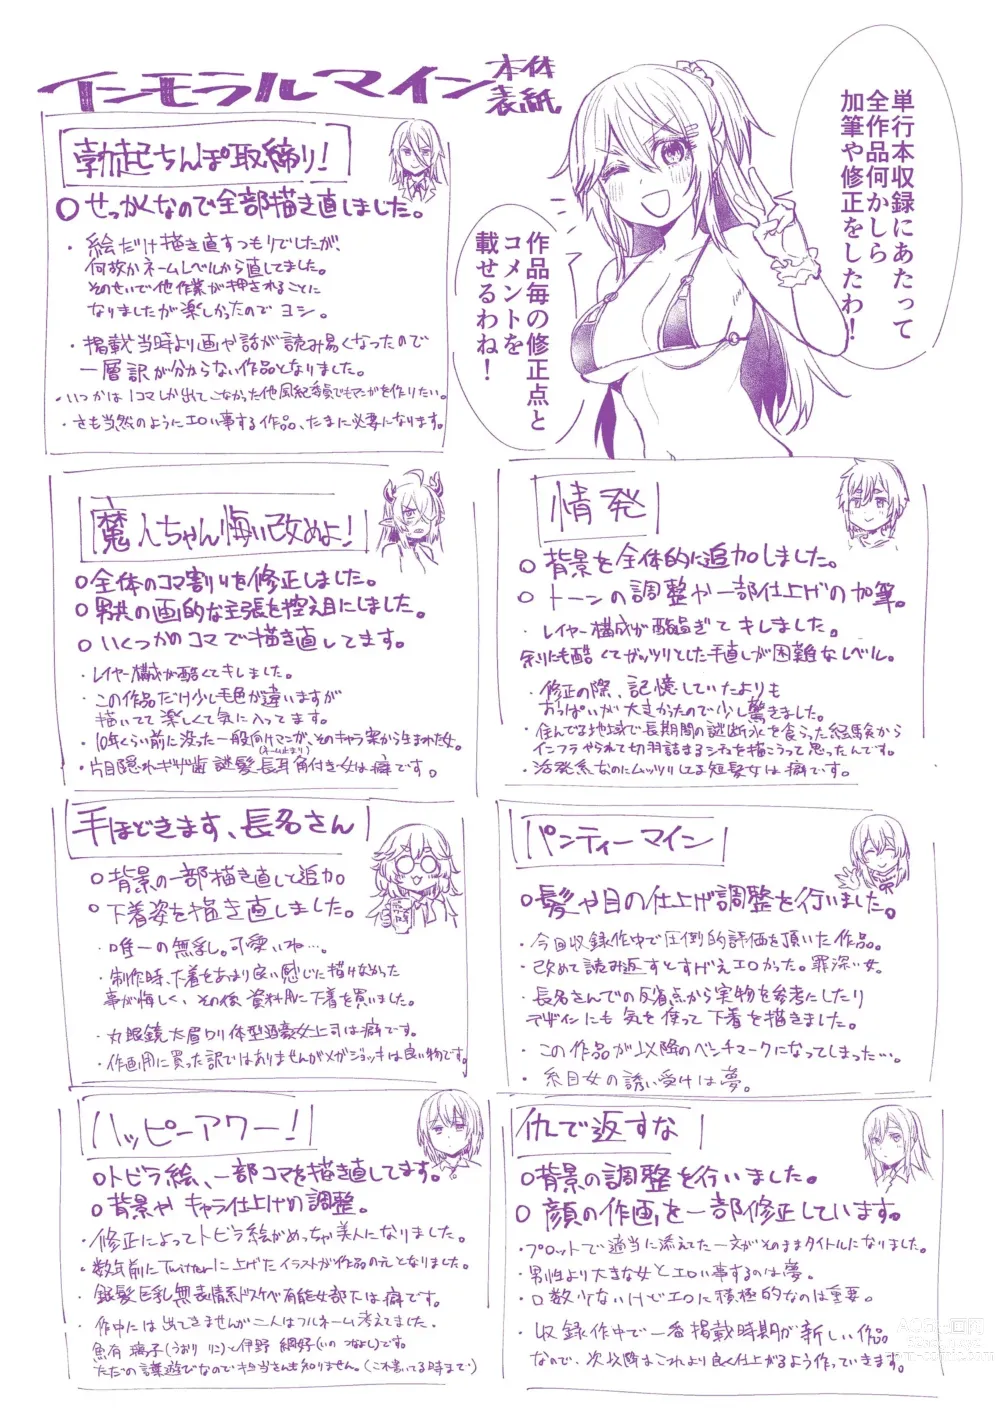 インモラルマイン 本体
表紙
単行本収録にあたって
全作品何かしら
加筆や修正をしたわ！
作品毎の修正点と
コメントを
載せるわね！
勃起ちんぽ取締り！
○せっかくなので全部描き直しました。
・絵だけ描き直すつもりでしたが、
何故かネームレベルから直してました。
そのせいで他作業が押されることに
なりましたが楽しかったので ヨシ。
・掲載当時より画や話が読み易くなったので
一層訳が分からない作品となりました。
・いつかは1コマしか出てこなかった他風紀委員でもマンガを作りたい。
・さも当然のようにエロい事する作品、たまに必要になります。
魔人ちゃん悔い改めよ！
○全体のコマ割りを修正しました。
○男共の画的な主張を控え目にしました。
○いくつかのコマで描き直してます。
・レイヤー構成が酷くてキレました。
・この作品だけ少し毛色が違いますが
描いてて楽しくて気に入ってます。
・10年くらい前に没った一般向けマンガ、そのキャラ案から生まれた女。
(ネーム止まり)
・片目隠れギザ歯謎髪長耳角付き女は癖です。
情発
○背景を全体的に追加しました。
○トーンの調整や一部仕上げの加筆。
・レイヤー構成が酷過ぎてキレました。
余りにも酷くてガッツリとした手直しが困難なレベル。
・修正の際、記憶していたよりも
おっぱいが大きかったので少し驚きました。
・住んでる地域で長期間の謎断水を食らった経験から
インフラやられて切羽詰まるシチュを描こうって思ったんです。
・活発系なのにムッツリしてる短髪女は癖です。
手ほどきます、長名さん
○背景の一部描き直しと追加
○下着姿を描き直しました。
・唯一の無乳。可愛いね…。
・制作時、下着をあまり良い感じに描けなかった
事が悔しく、その後資料用に下着を買いました。
・丸眼鏡太眉ロリ体型酒豪女上司は癖です。
・作画用に買った訳ではありませんがメガジョッキは良い物です。
パンティーマイン
○髪や目の仕上げ調整を行いました。
・今回収録作中で圧倒的評価を頂いた作品。
・改めて読み返すとすげえエロかった。罪深い女。
・長名さんでの反省点から実物を参考にしたり
デザインにも気を使って下着を描きました。
・この作品が以降のベンチマークになってしまった…。
・糸目女の誘い受けは夢。
ハッピーアワー！
○トビラ絵、一部コマを描き直してます。
○背景や キャラ仕上げの調整。
・修正によってトビラ絵がめっちゃ美人になりました。
・数年前にTwitterに上げたイラストが作品の元となりました。
・銀髪巨乳無表情系ドスケベ有能女部下は癖です。
・作中には出てきませんが二人はフルネーム考えてました。
魚有 璃子(うおり りこ)と伊野 綱好(いの つなよし)です。
ただの言葉遊びなので担当さんも知りません。(これ書いてる時まで)
仇で返すな
○背景の調整を行いました。
○顔の作画を一部修正しています。
・プロットで適当に添えてた一文がそのままタイトルになりました。
・男性より大きな女とエロい事するのは夢。
・口数少ないけどエロに積極的なのは重要。
・収録作中で一番掲載時期が新しい作品
なので、次以降はこれより良く仕上がるよう作っていきます。